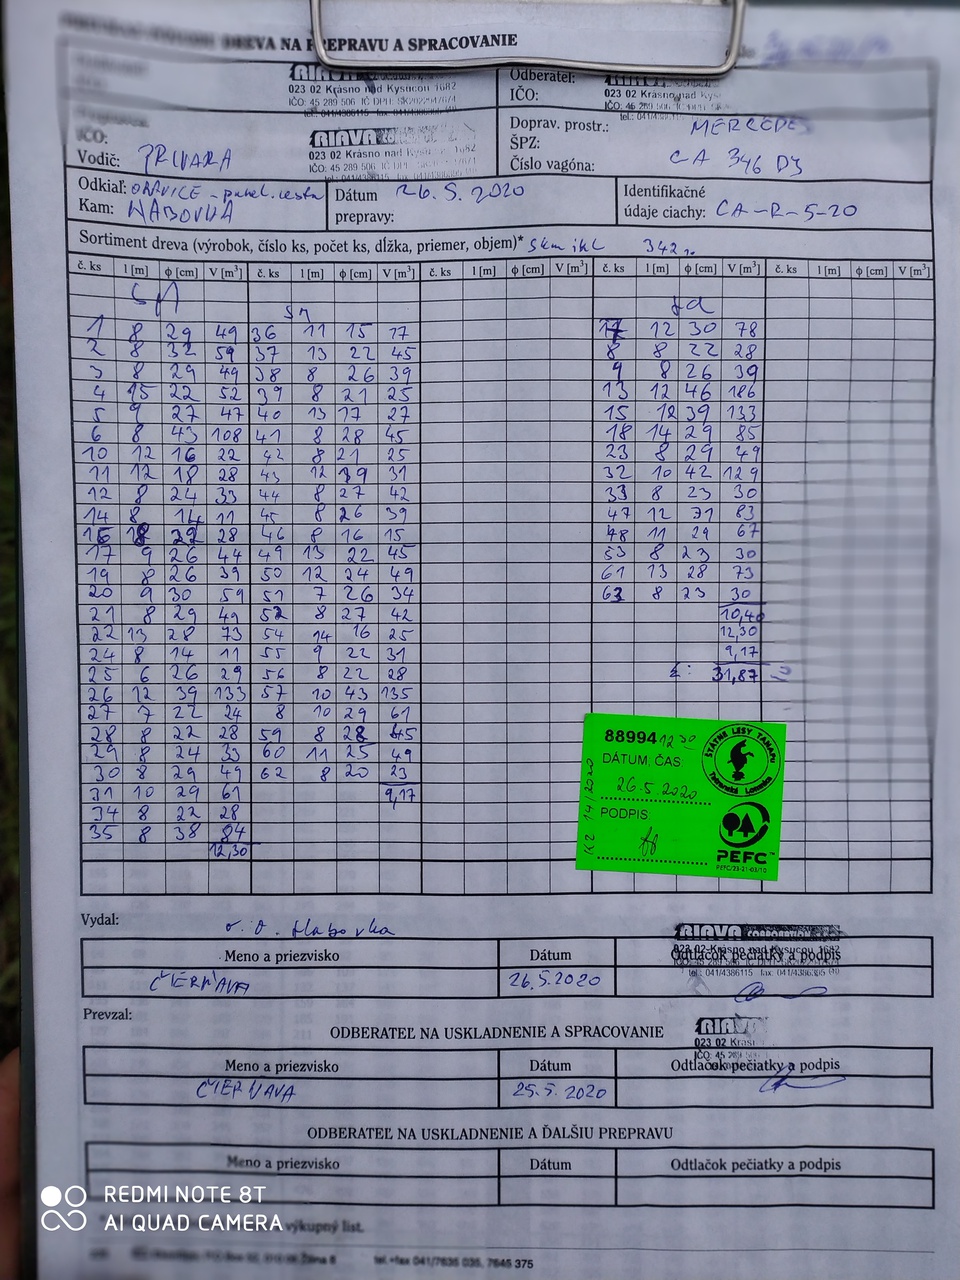 DREVA NA PREPRAVU A SPRACOVANIE
RIAVA
023 02 Krásno nad Kysucou 1682
IČO: 45 289 506
Odberateľ:
IČO:
023 02 Krásno nad Kysu
IČO: 45 289 506
IČO:
Vodič: PRIVARA
RIAVA
023 02 Krásno nad Kysucou 1682
IČO: 45 289 506
tel.: 041/4386115
Doprav. prostr.: MERCEDES
ŠPZ:
Číslo vagóna: CA 346 DJ
Odkiaľ: ORAVICE - panel. cesta
Kam: HABOVKA
Dátum prepravy: 26. 5. 2020
Identifikačné údaje ciachy: CA-R-5-20
Sortiment dreva (výrobok, číslo ks, počet ks, dĺžka, priemer, objem)* 342
č. ks l [m] ϕ [cm] V [m³] č. ks l [m] ϕ [cm] V [m³] č. ks l [m] ϕ [cm] V [m³] č. ks l [m] ϕ [cm] V [m³] č. ks l [m] ϕ [cm] V [m³]
sm sm jd
1 8 29 49 36 11 15 17 12 30 78
2 8 32 59 37 13 22 45 8 8 22 28
3 8 29 49 38 8 26 39 9 8 26 39
4 15 22 52 39 8 21 25 13 12 46 186
5 9 27 47 40 13 17 27 15 12 39 133
6 8 43 108 41 8 28 45 18 14 29 85
10 12 16 22 42 8 21 25 23 8 29 49
11 12 18 28 43 12 31 32 10 42 129
12 8 24 33 44 8 27 42 33 8 23 30
14 8 14 11 45 8 26 39 47 12 31 83
16 8 22 28 46 8 16 15 48 11 29 67
17 9 26 44 49 13 22 45 53 8 23 30
19 8 26 39 50 12 24 49 61 13 28 73
20 9 30 59 51 7 26 34 63 8 23 30
21 8 29 49 52 8 27 42 10,40
22 13 28 73 54 14 16 25 12,30
24 8 14 11 55 9 22 31 9,17
25 6 26 29 56 8 22 28 Σ: 31,87
26 12 39 133 57 10 43 135
27 7 22 24 8 10 29 61
28 8 22 28 59 8 28 45
29 8 24 33 60 11 25 49
30 8 29 49 62 8 20 23
31 10 29 61 9,17
34 8 22 28
35 8 38 84
12,30
88994 12 30
ŠTÁTNE LESY TANAPU
Tatranská Lomnica
DÁTUM, ČAS:
26.5.2020
PODPIS:
KZ 14/2020
PEFC™
PEFC/23-21-03/10
Vydal: Habovka
RIAVA
CORPORATION
023 02 Krásno nad Kysucou 1682
tel.: 041/4386115
Meno a priezvisko Dátum Odtlačok pečiatky a podpis
ČIERŇAVA 26.5.2020
Prevzal:
ODBERATEĽ NA USKLADNENIE A SPRACOVANIE
RIAVA
023 02 Krásn
Meno a priezvisko Dátum Odtlačok pečiatky a podpis
ČIERŇAVA 25.5.2020
ODBERATEĽ NA USKLADNENIE A ĎALŠIU PREPRAVU
Meno a priezvisko Dátum Odtlačok pečiatky a podpis
REDMI NOTE 8T
AI QUAD CAMERA
výkupný list.
tel.+fax 041/7635 035, 7645 375